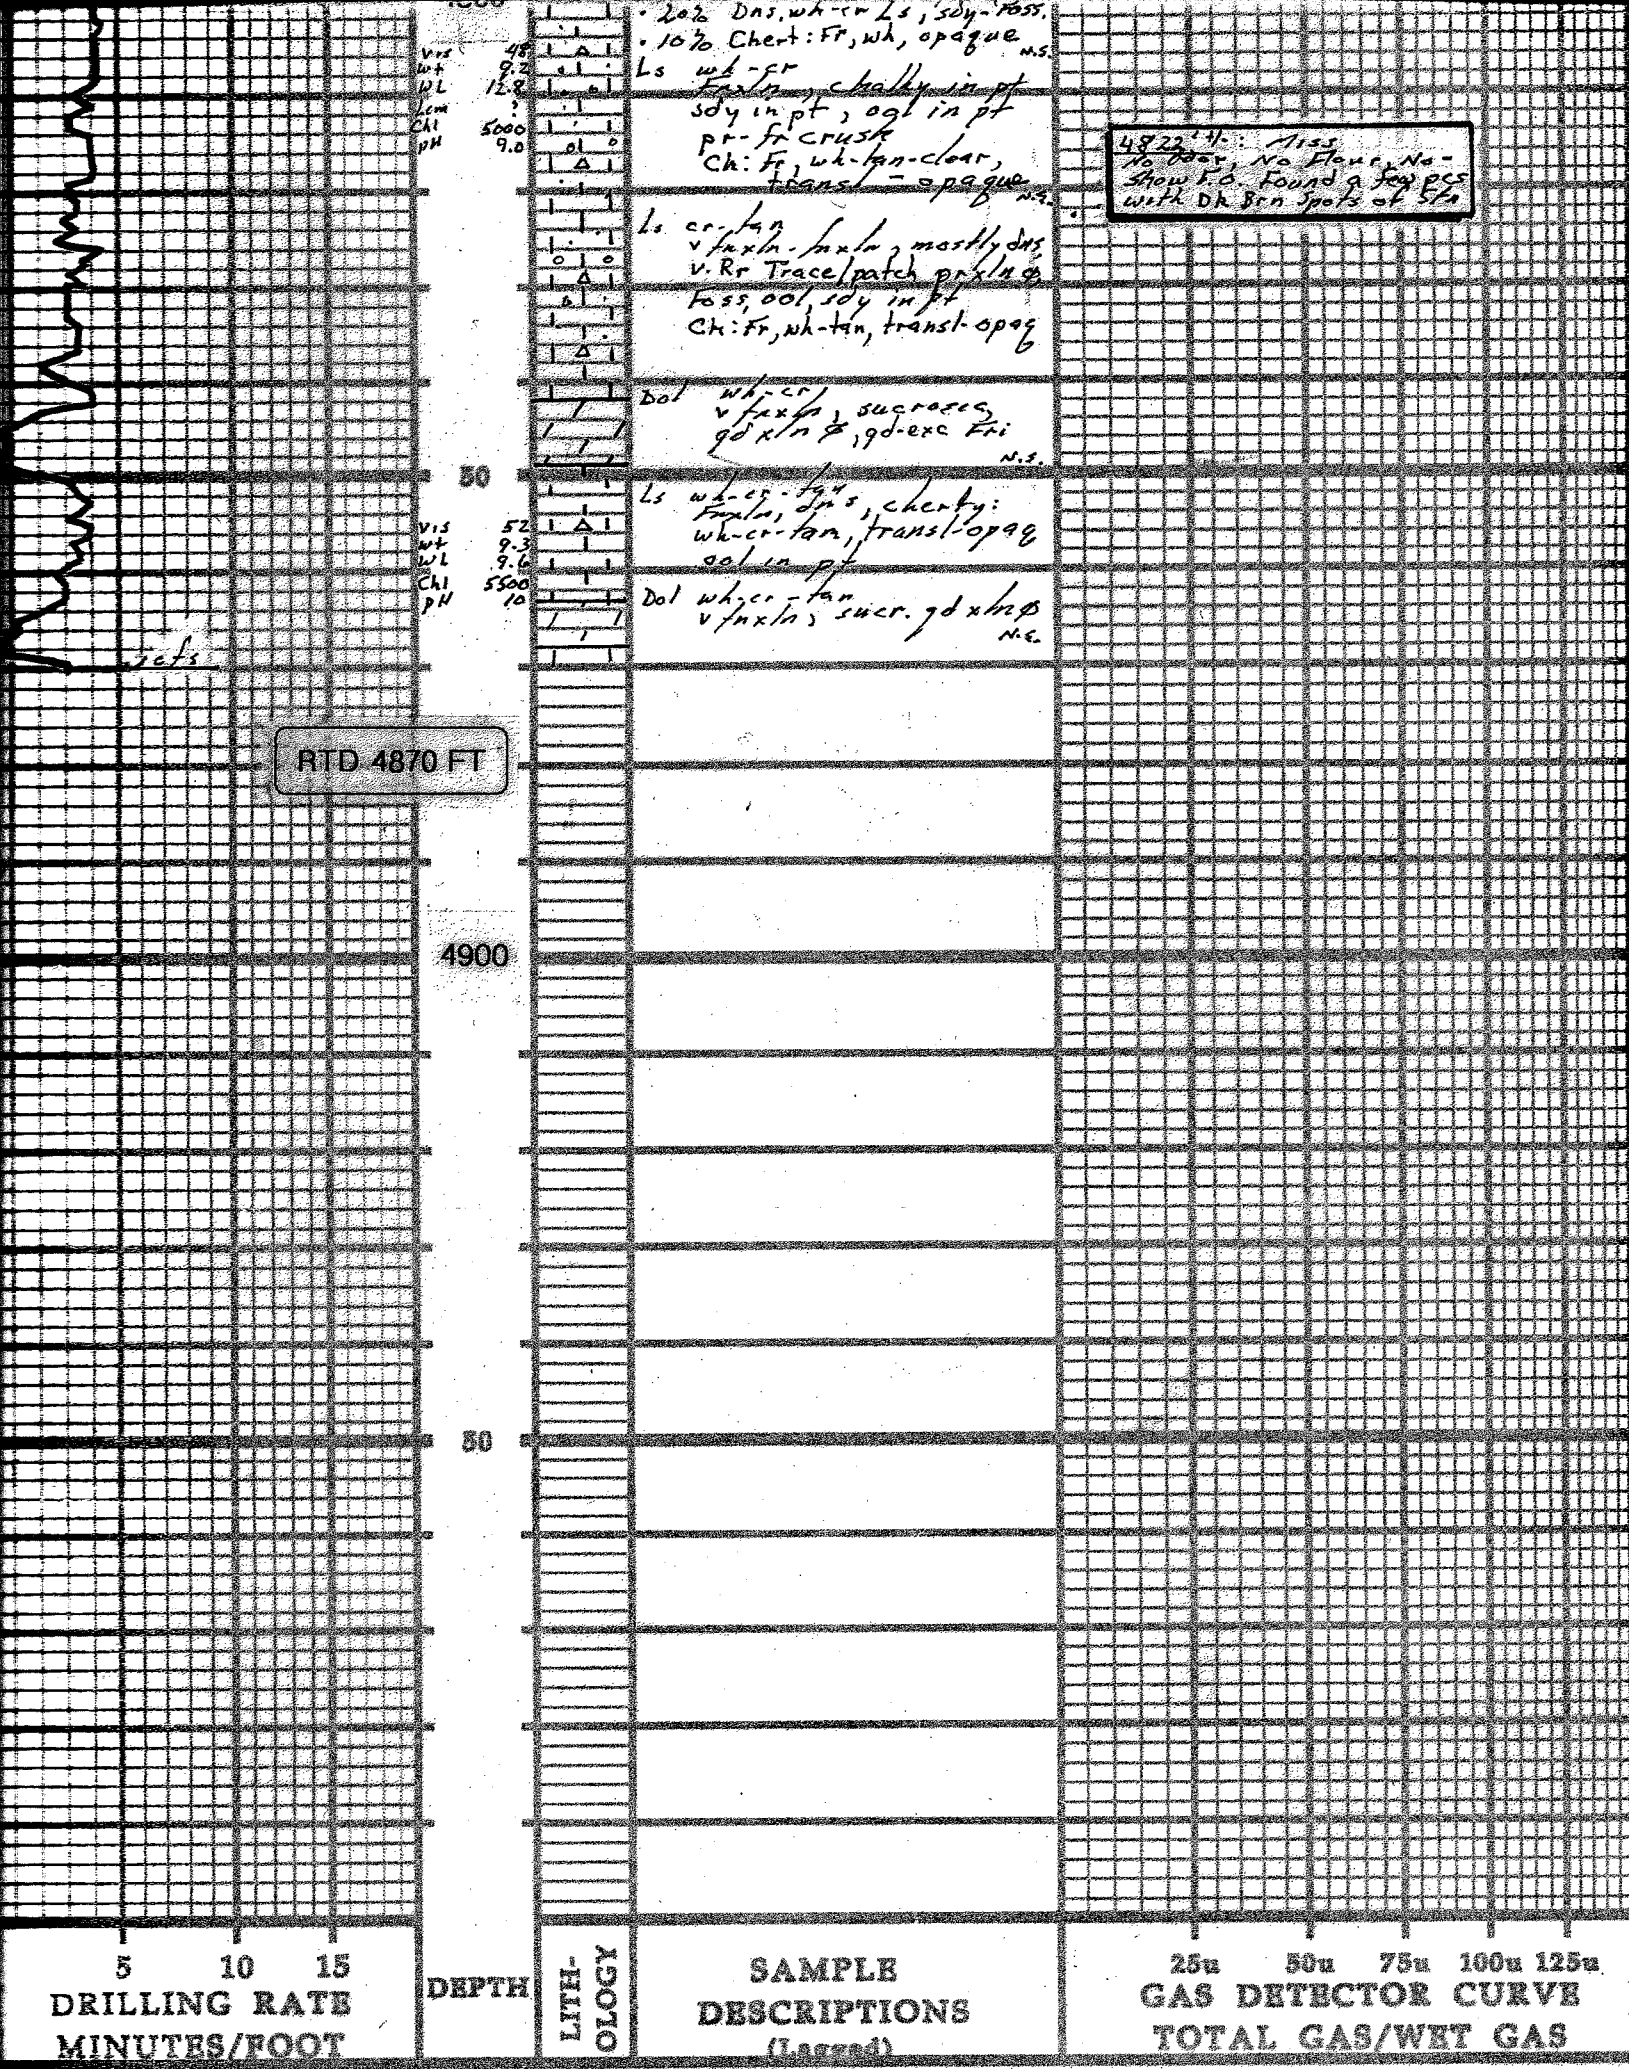 · 20% Dns, wh-cr Ls, sdy-foss.
· 10% Chert: Fr, wh, opaque
N.S.
vis 48
wt 9.2
WL 12.8
Lcm ?
Chl 5000
pH 9.0
Ls wh-cr
fnxln, chalky in pt
sdy in pt, ool in pt
pr-fr crush
Ch: Fr, wh-tan-clear,
transl - opaque
N.S.
4822' +/-: Miss
No Odor, No Flour, No-
Show F.O. Found a few pcs
with Dk Brn Spots of Stn
Ls cr-tan
v fnxln-fnxln, mostly dns
v. Rr Trace/patch prxln ø
Foss, ool, sdy in pt
Ch: Fr, wh-tan, transl-opaq
Dol wh-cr
v fnxln, sucrosic,
gd xln ø, gd-exc Fri
N.S.
50
Ls wh-cr-tan
Fnxln, dns, cherty:
wh-cr-tan, transl-opaq
ool in pt
vis 52
wt 9.3
WL 9.6
Chl 5500
pH 10
Dol wh-cr-tan
v fnxln, sucr. gd xln ø
N.S.
RTD 4870 FT
4900
50
5 10 15
DRILLING RATE
MINUTES/FOOT
DEPTH
LITH-
OLOGY
SAMPLE
DESCRIPTIONS
(Lagged)
25u 50u 75u 100u 125u
GAS DETECTOR CURVE
TOTAL GAS/WET GAS